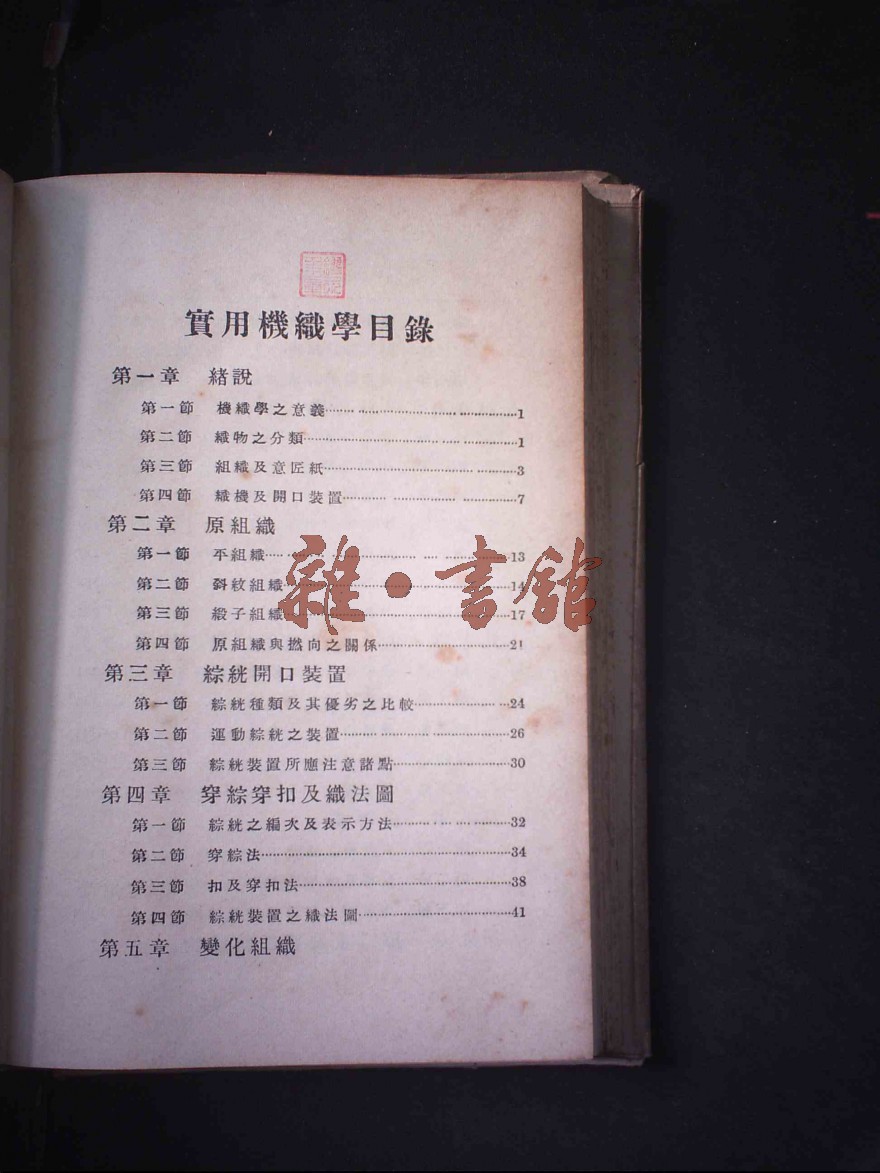 實用機織學目錄
第一章 緒說
第一節 機織學之意義 1
第二節 織物之分類 1
第三節 組織及意匠紙 3
第四節 織機及開口裝置 7
第二章 原組織
第一節 平組織 13
第二節 斜紋組織 14
第三節 緞子組織 17
第四節 原組織與撚向之關係 21
雜·書館
第三章 綜絖開口裝置
第一節 綜絖種類及其優劣之比較 24
第二節 運動綜絖之裝置 26
第三節 綜絖裝置所應注意諸點 30
第四章 穿綜穿扣及織法圖
第一節 綜絖之編次及表示方法 32
第二節 穿綜法 34
第三節 扣及穿扣法 38
第四節 綜絖裝置之織法圖 41
第五章 變化組織